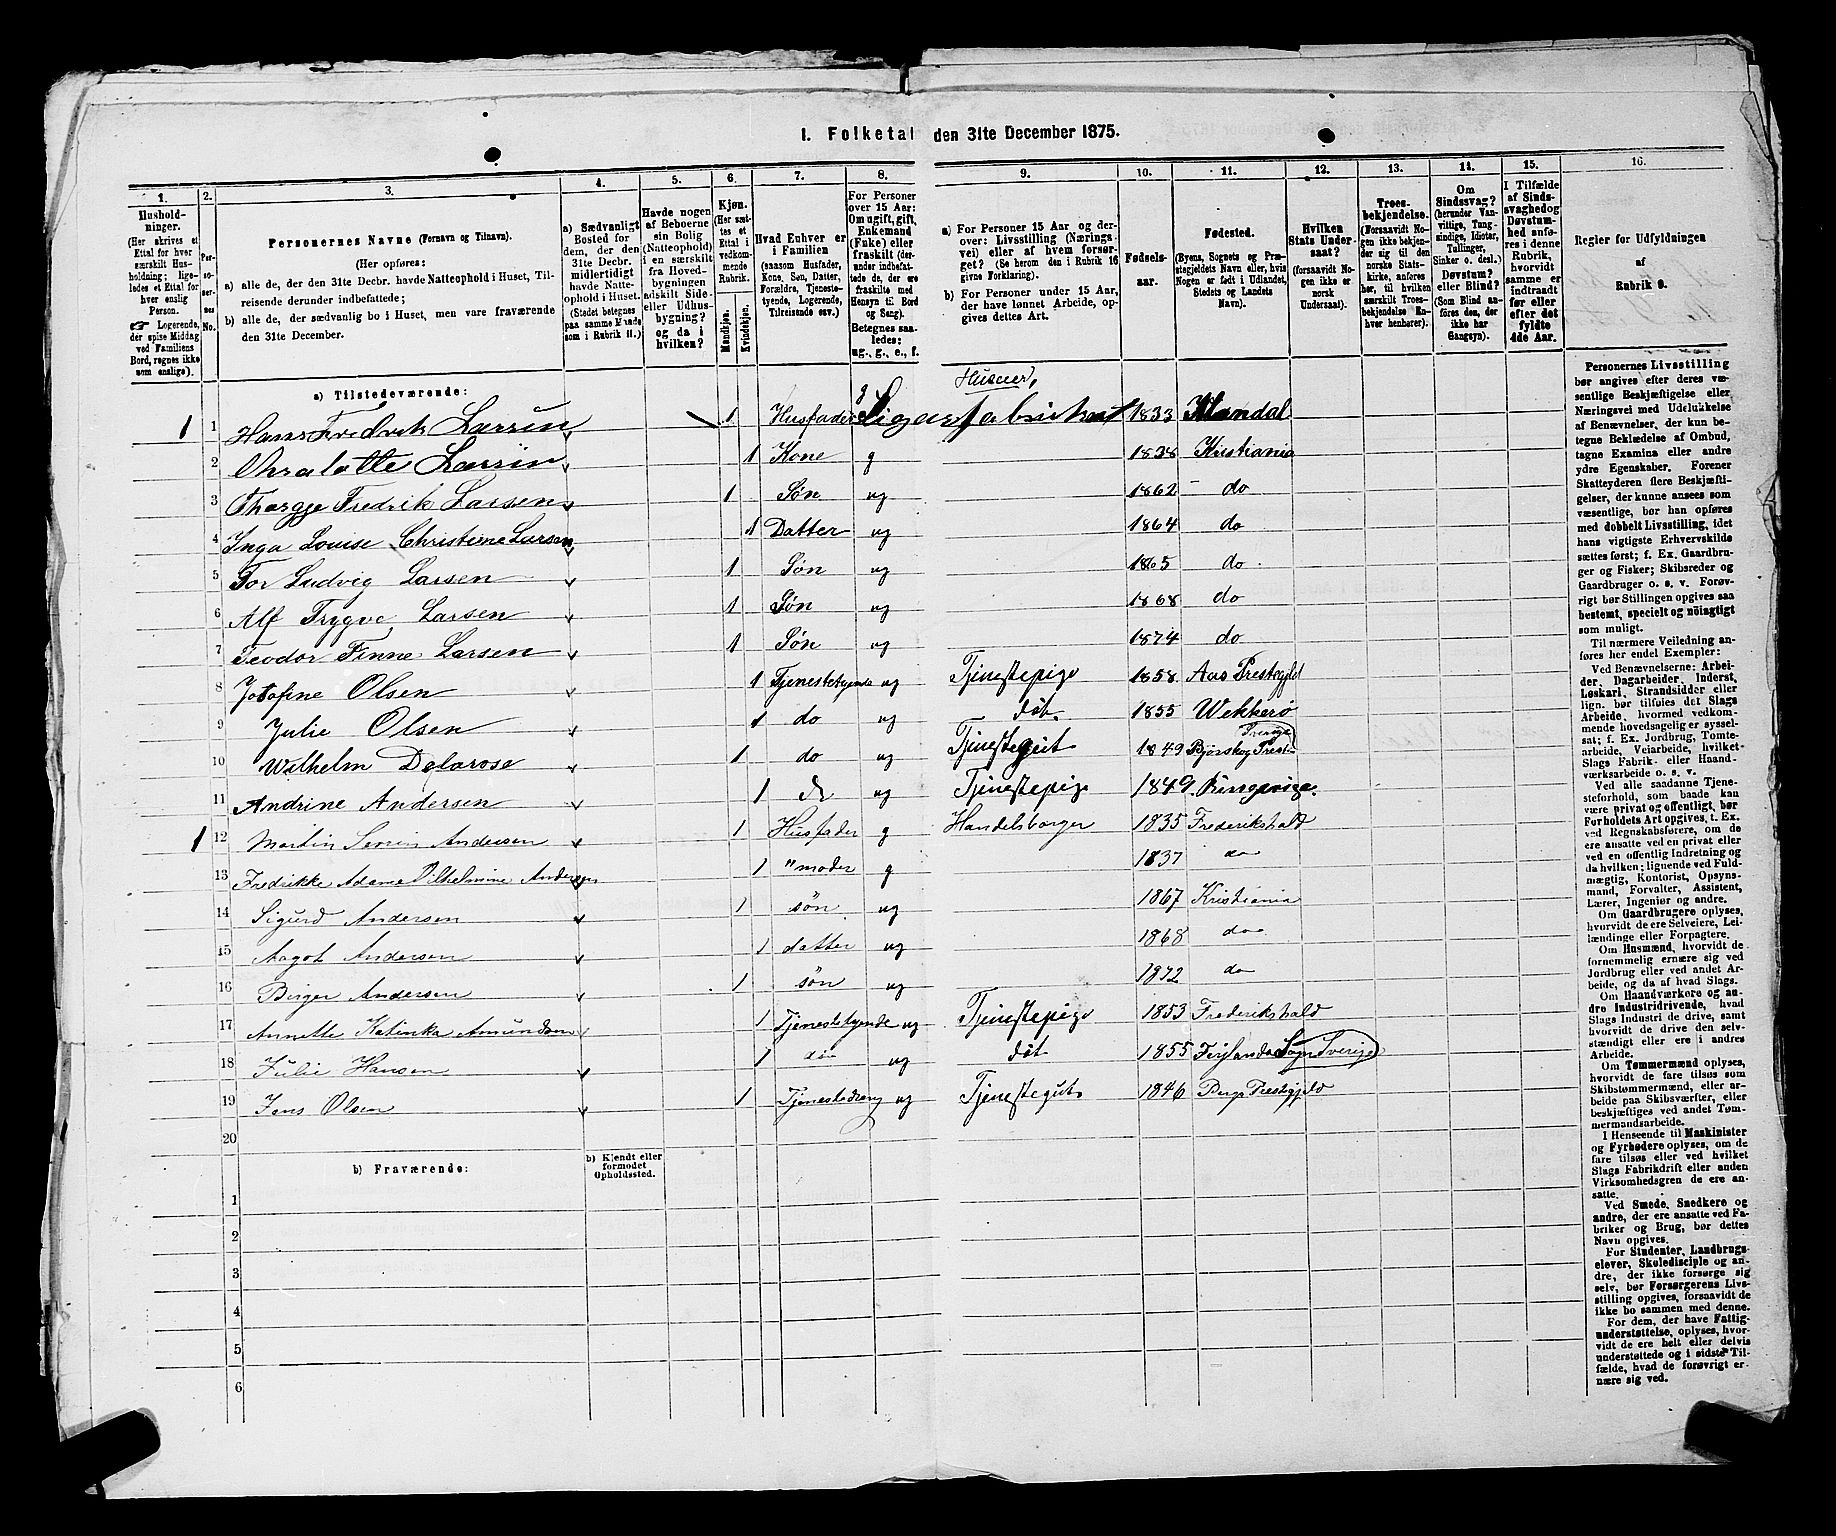 1. Folketal den 31te December 1875.
1. 2. 3. 4. 5. 6. 7. 8. 9. 10. 11. 12. 13. 14. 15. 16.
Husholdninger.
(Her skrives et
Ettal for hver
særskilt Husholdning;
ligeledes
et Ettal for
hver enslig
Person.
☞ Logerende,
der spise Middag
ved Familiens
Bord, regnes ikke
som enslige).
Personernes No.
Personernes Navne (Fornavn og Tilnavn).
(Her opføres:
a) alle de, der den 31te Decbr. havde Natteophold i Huset, Tilreisende
derunder indbefattede;
b) alle de, der sædvanlig bo i Huset, men vare fraværende
den 31te December.
a) Sædvanligt
Bosted for
dem, der den
31te Decbr.
midlertidigt
havde Natteophold
i Huset.
(Stedet betegnes
paa samme Maade
som i Rubrik 11.)
Havde nogen
af Beboerne
sin Bolig
(Natteophold)
i en særskilt
fra Hovedbygningen
adskilt Side-
eller Udhusbygning?
og da i
hvilken?
Kjøn.
(Her sættes
et
Ettal i
vedkommende
Rubrik.
Mandkjøn.
Kvindekjøn.
Hvad Enhver er
i Familien
(saasom Husfader,
Kone, Søn, Datter,
Forældre, Tjenestetyende,
Logerende,
Tilreisende osv.)
For Personer
over 15 Aar:
Om ugift, gift,
Enkemand
(Enke) eller
fraskilt (derunder
indbefattede
de, der ere
fraskilte med
Hensyn til Bord
og Seng).
Betegnes saaledes:
ug., g., e., f.
a) For Personer 15 Aar og derover:
Livsstilling (Næringsvei)
eller af hvem forsørget?
(Se herom den i Rubrik 16
givne Forklaring).
b) For Personer under 15 Aar,
der have lønnet Arbeide, opgives
dettes Art.
Fødselsaar.
Fødested.
(Byens, Sognets og Præstegjeldets
Navn eller, hvis
Nogen er født i Udlandet,
Stedets og Landets
Navn).
Hvilken
Stats Undersaat?
(forsaavidt Nogen
ikke er
norsk
Undersaat).
Troesbekjendelse.
(Forsaavidt Nogen
ikke bekjender
sig til den
norske Statskirke,
anføres
her, til hvilken
særskilt Troesbekjendelse
Enhver
henhører).
Om
Sindssvag?
(herunder Vanvittige,
Tungsindige,
Idioter,
Tullinger,
Sinker o. desl.)
Døvstum?
eller Blind?
(Som Blind anføres
den, der
ikke har
Gangsyn).
I Tilfælde
af Sindssvaghed
og
Døvstumhed
anføres
i denne
Rubrik,
hvorvidt
samme er
indtraadt
før eller
efter det
fyldte
4de Aar.
Regler for Udfyldningen
af
Rubrik 9.
a) Tilstedeværende:
Huseier,
1 1 Hans Fredrik Larsen 1 Husfader g Sigarfabrikant 1833 Mandal
2 Chralotte Larsen 1 Kone g 1838 Kristiania
3 Thorgje Fredrik Larsen 1 Søn ug 1862 do
4 Inga Louise Christiene Larsen 1 Datter ug 1864 do
5 Tor Ludvig Larsen 1 Søn ug 1865 do
6 Alf Trygve Larsen 1 Søn ug 1868 do
7 Teodor Finne Larsen 1 Søn ug 1874 do
8 Josefine Olsen 1 Tjenestetyende ug Tjenestepige 1858 Aas Prestegjld
9 Julie Olsen 1 do ug dit. 1855 Wekkerø
10 Wilhelm Delarose 1 do ug Tjenestegut 1849 Bjørskog Prest Sverige
11 Andrine Andersen 1 do ug Tjenestepige 1849 Ringerige.
1 12 Martin Andersen 1 Husfader g Handelsborger 1835 Frederikshald
13 Fredrikke Adama Vilhelmine Andersen 1 " moder g 1837 do
14 Sigurd Andersen 1 søn ug 1867 Kristiania
15 Aagot Andersen 1 datter ug 1868 do
16 Birger Andersen 1 søn ug 1872 do
17 Annette Katinka Amundsen 1 Tjenestetyende ug Tjenestepige 1853 Frederikshald
18 Julie Hansen 1 do ug dit 1855 Sogn Sverige
19 Jens Olsen 1 Tjenestedreng ug Tjenestegut 1846 Bergs Prestgjeld
20
b) Fraværende:
b) Kjendt eller
formodet
Opholdssted.
1
2
3
4
5
6
Personernes Livsstilling
bør angives efter deres væsentlige
Beskjæftigelse eller
Næringsvei med Udelukkelse
af Benævnelser, der kun betegne
Beklædelse af Ombud,
tagne Examina eller andre
ydre Egenskaber. Forener
Skatteyderen flere Beskjæftigelser,
der kunne ansees som
væsentlige, bør han opføres
med dobbelt Livsstilling, idet
hans vigtigste Erhvervskilde
sættes først; f. Ex. Gaardbruger
og Fisker; Skibsreder og
Gaardbruger o. s. v. Forøvrigt
bør Stillingen opgives saa
bestemt, specielt og nöiagtigt
som muligt.
Til nærmere Veiledning anføres
her endel Exempler:
Ved Benævnelserne: Arbeider,
Dagarbeider, Inderst,
Løskarl, Strandsidder eller
lign. bør tilføies det Slags
Arbeide, hvormed vedkommende
hovedsagelig er sysselsat;
f. Ex. Jordbrug, Tomtearbeide,
Veiarbeide, hvilketSlags
Fabrik- eller Haandværksarbeide
o. s. v.
Ved alle saadanne Tjenesteforhold,
som baade kan
være privat og offentligt, bør
Forholdets Art opgives, t. Ex.
ved Regnskabsførere, om de
ere ansatte ved en privat eller
ved en offentlig Indretning og
da hvilken; lignende ved Fuldmægtig,
Kontorist, Opsynsmand,
Forvalter, Assistent,
Lærer, Ingeniør og andre.
Om Gaardbrugere oplyses,
hvorvidt de ere Selveiere, Leilændinge
eller Forpagtere.
Om Husmænd, hvorvidt de
fornemmelig ernære sig ved
Jordbrug eller ved andet Arbeide,
og da af hvad Slags.
Om Haandværkere og andre
Industridrivende, hvad
Slags Industri de drive, samt
hvorvidt de drive den selvstændigt
eller ere i andres
Arbeide.
Om Tømmermænd oplyses,
hvorvidt de fare tilsøs som
Skibstømmermænd, eller arbeide
paa Skibsværfter, eller
beskjæftiges ved andet Tømmermandsarbeide.
I Henseende til Maskinister
og Fyrbødere oplyses, om de
fare tilsøs eller ved hvilket
Slags Fabrikdrift eller anden
Virksomhedsgren de ere ansatte.
Ved Smede, Snedkere og
andre, der ere ansatte ved Fabriker
og Brug, bør dettes
Navn opgives.
For Studenter, Landbrugselever,
Skoledisciple og andre,
der ikke forsørge sig
selv, bør Forsørgerens Livsstilling
opgives, forsaavidt de
ikke bo sammen med denne.
For dem, der have Fattigunderstøttelse,
oplyses, hvorvidt
de ere helt eller delvis
understøttede og i sidste Tilfælde,
hvad de forøvrigt ernære
sig ved.